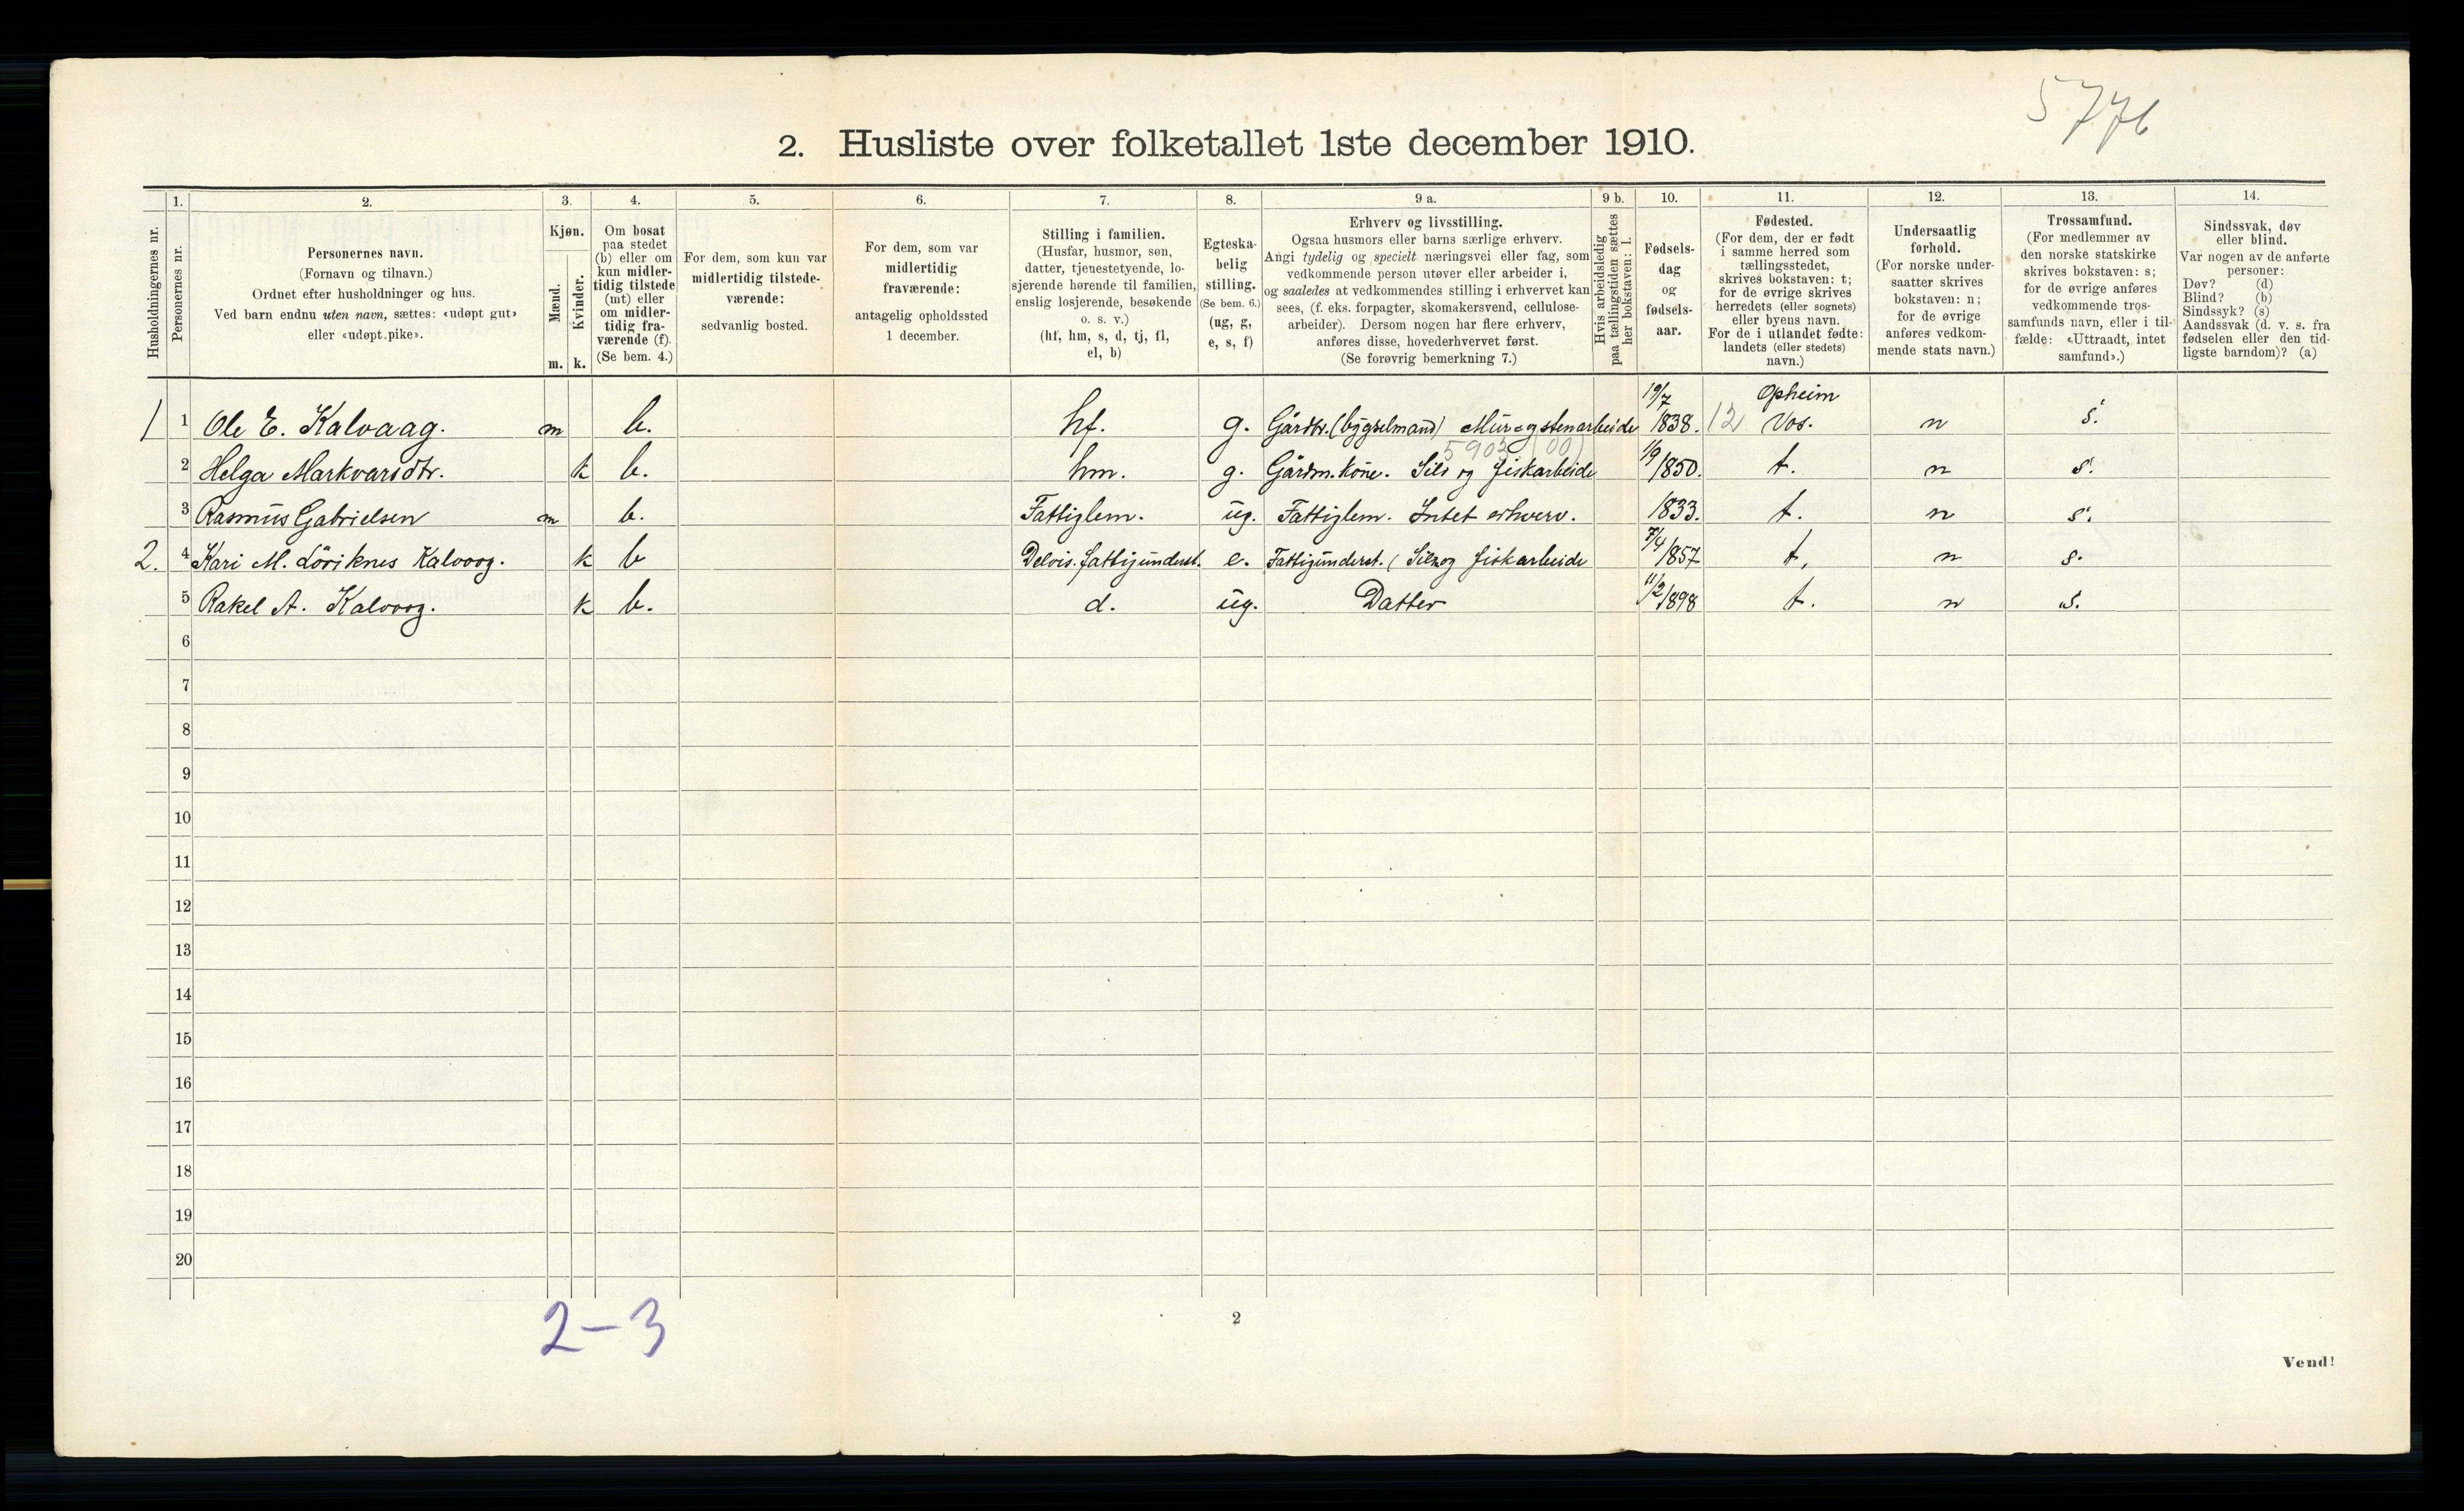 5776
2. Husliste over folketallet 1ste december 1910.
Husholdningernes nr.
1.
Personernes nr.
2.
Personernes navn.
(Fornavn og tilnavn.)
Ordnet efter husholdninger og hus.
Ved barn endnu uten navn, sættes: «udøpt gut»
eller «udøpt pike».
3.
Kjøn.
Mænd.
m.
Kvinder.
k.
4.
Om bosat
paa stedet
(b) eller om
kun midler-
tidig tilstede
(mt) eller
om midler-
tidig fra-
værende (f).
(Se bem. 4.)
5.
For dem, som kun var
midlertidig tilstede-
værende:
sedvanlig bosted.
6.
For dem, som var
midlertidig
fraværende:
antagelig opholdssted
1 december.
7.
Stilling i familien.
(Husfar, husmor, søn,
datter, tjenestetyende, lo-
sjerende hørende til familien,
enslig losjerende, besøkende
o. s. v.)
(hf, hm, s, d, tj, fl,
el, b)
8.
Egteska-
belig
stilling.
(Se bem. 6.)
(ug, g,
e, s, f)
9 a.
Erhverv og livsstilling.
Ogsaa husmors eller barns særlige erhverv.
Angi tydelig og specielt næringsvei eller fag, som
vedkommende person utøver eller arbeider i,
og saaledes at vedkommendes stilling i erhvervet kan
sees, (f. eks. forpagter, skomakersvend, cellulose-
arbeider). Dersom nogen har flere erhverv,
anføres disse, hovederhvervet først.
(Se forøvrig bemerkning 7.)
9 b.
Hvis arbeidsledig
paa tællingstiden sættes
her bokstaven: l.
10.
Fødsels-
dag
og
fødsels-
aar.
11.
Fødested.
(For dem, der er født
i samme herred som
tællingsstedet,
skrives bokstaven: t;
for de øvrige skrives
herredets (eller sognets)
eller byens navn.
For de i utlandet fødte:
landets (eller stedets)
navn.)
12.
Undersaatlig
forhold.
(For norske under-
saatter skrives
bokstaven: n;
for de øvrige
anføres vedkom-
mende stats navn.)
13.
Trossamfund.
(For medlemmer av
den norske statskirke
skrives bokstaven: s;
for de øvrige anføres
vedkommende tros-
samfunds navn, eller i til-
fælde: «Uttraadt, intet
samfund».)
14.
Sindssvak, døv
eller blind.
Var nogen av de anførte
personer:
Døv? (d)
Blind? (b)
Sindssyk? (s)
Aandssvak (d. v. s. fra
fødselen eller den tid-
ligste barndom)? (a)
1 1 Ole E. Kalvaag. m b. hf. g. Gårdbr. (bygselmand) Mur og stenarbeide 19/7 1838. 12 Opheim Vos. n s.
5903 (00)
2 Helga Markvardtr. k b. hm. g. Gårdm. kone. Sild og fiskarbeide 1/9 1850. t. n s.
3 Rasmus Gabrielsen m b. Fattiglem. ug. Fattiglem. Intet erhverv. 1833. t. n s.
2. 4 Kari M. Löriknes Kalvaag. k b Delvis. fattigunderst. e. Fattigunderst. ( Sild og fiskarbeide 7/4 1857 t. n s.
5 Rakel A. Kalvaag. k b. d. ug. Datter 11/2 1898 t. n s.
6
7
8
9
10
11
12
13
14
15
16
17
18
19
20
2-3
2
Vend!